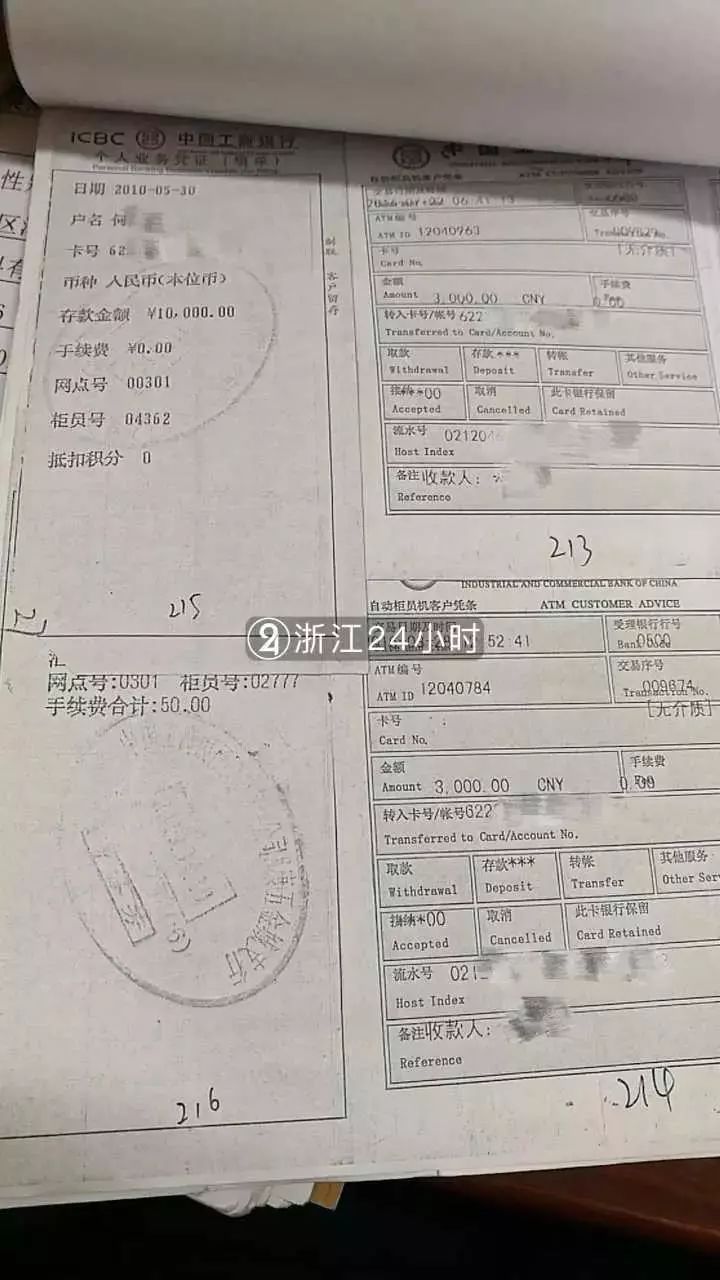 ICBC 中国工商银行
个人业务凭证（填单）
日期 2010-05-30
户名 何
卡号 62
币种 人民币(本位币)
存款金额 ¥10,000.00
手续费 ¥0.00
网点号 00301
柜员号 04362
抵扣积分 0
客户留存
215
网点号:0301 柜员号:02777
手续费合计:50.00
216
自动柜员机客户凭条 ATM CUSTOMER ADVICE
ATM编号 交易序号
ATM ID 12040763
卡号 [无介质]
Card No.
金额 手续费
Amount 3,000.00 CNY 0.00
转入卡号/帐号622
Transferred to Card/Account No.
取款 存款*** 转帐 其他服务
Withdrawal Deposit Transfer Other Service
取消 此卡银行保留
Accepted Cancelled Card Retained
流水号 021204
Host Index
备注收款人：
Reference
213
INDUSTRIAL AND COMMERCIAL BANK OF CHINA
自动柜员机客户凭条 ATM CUSTOMER ADVICE
交易日期及时间 52:41 受理银行行号
ATM编号 交易序号
ATM ID 12040784 009674
[无介质]
卡号
Card No.
金额 手续费
Amount 3,000.00 CNY 0.00
转入卡号/帐号622
Transferred to Card/Account No.
取款 存款*** 转帐 其他服务
Withdrawal Deposit Transfer Other Ser
取消 此卡银行保留
Accepted Cancelled Card Retained
流水号 021
Host Index
备注收款人：
Reference
214
浙江24小时